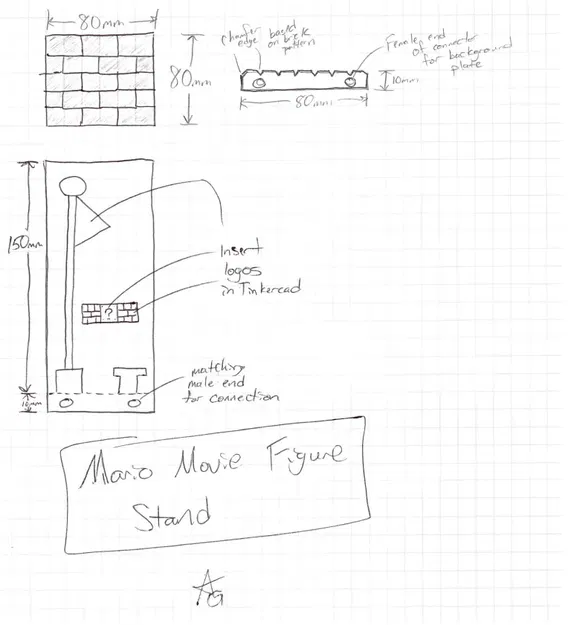 80mm
80mm
chamfer
edge based
on brick
pattern
Female end
of connector
for background
plate
10mm
80mm
150mm
Insert
logos
in Tinkercad
?
10mm
matching
male end
for connection
Mario Movie Figure
Stand
AG